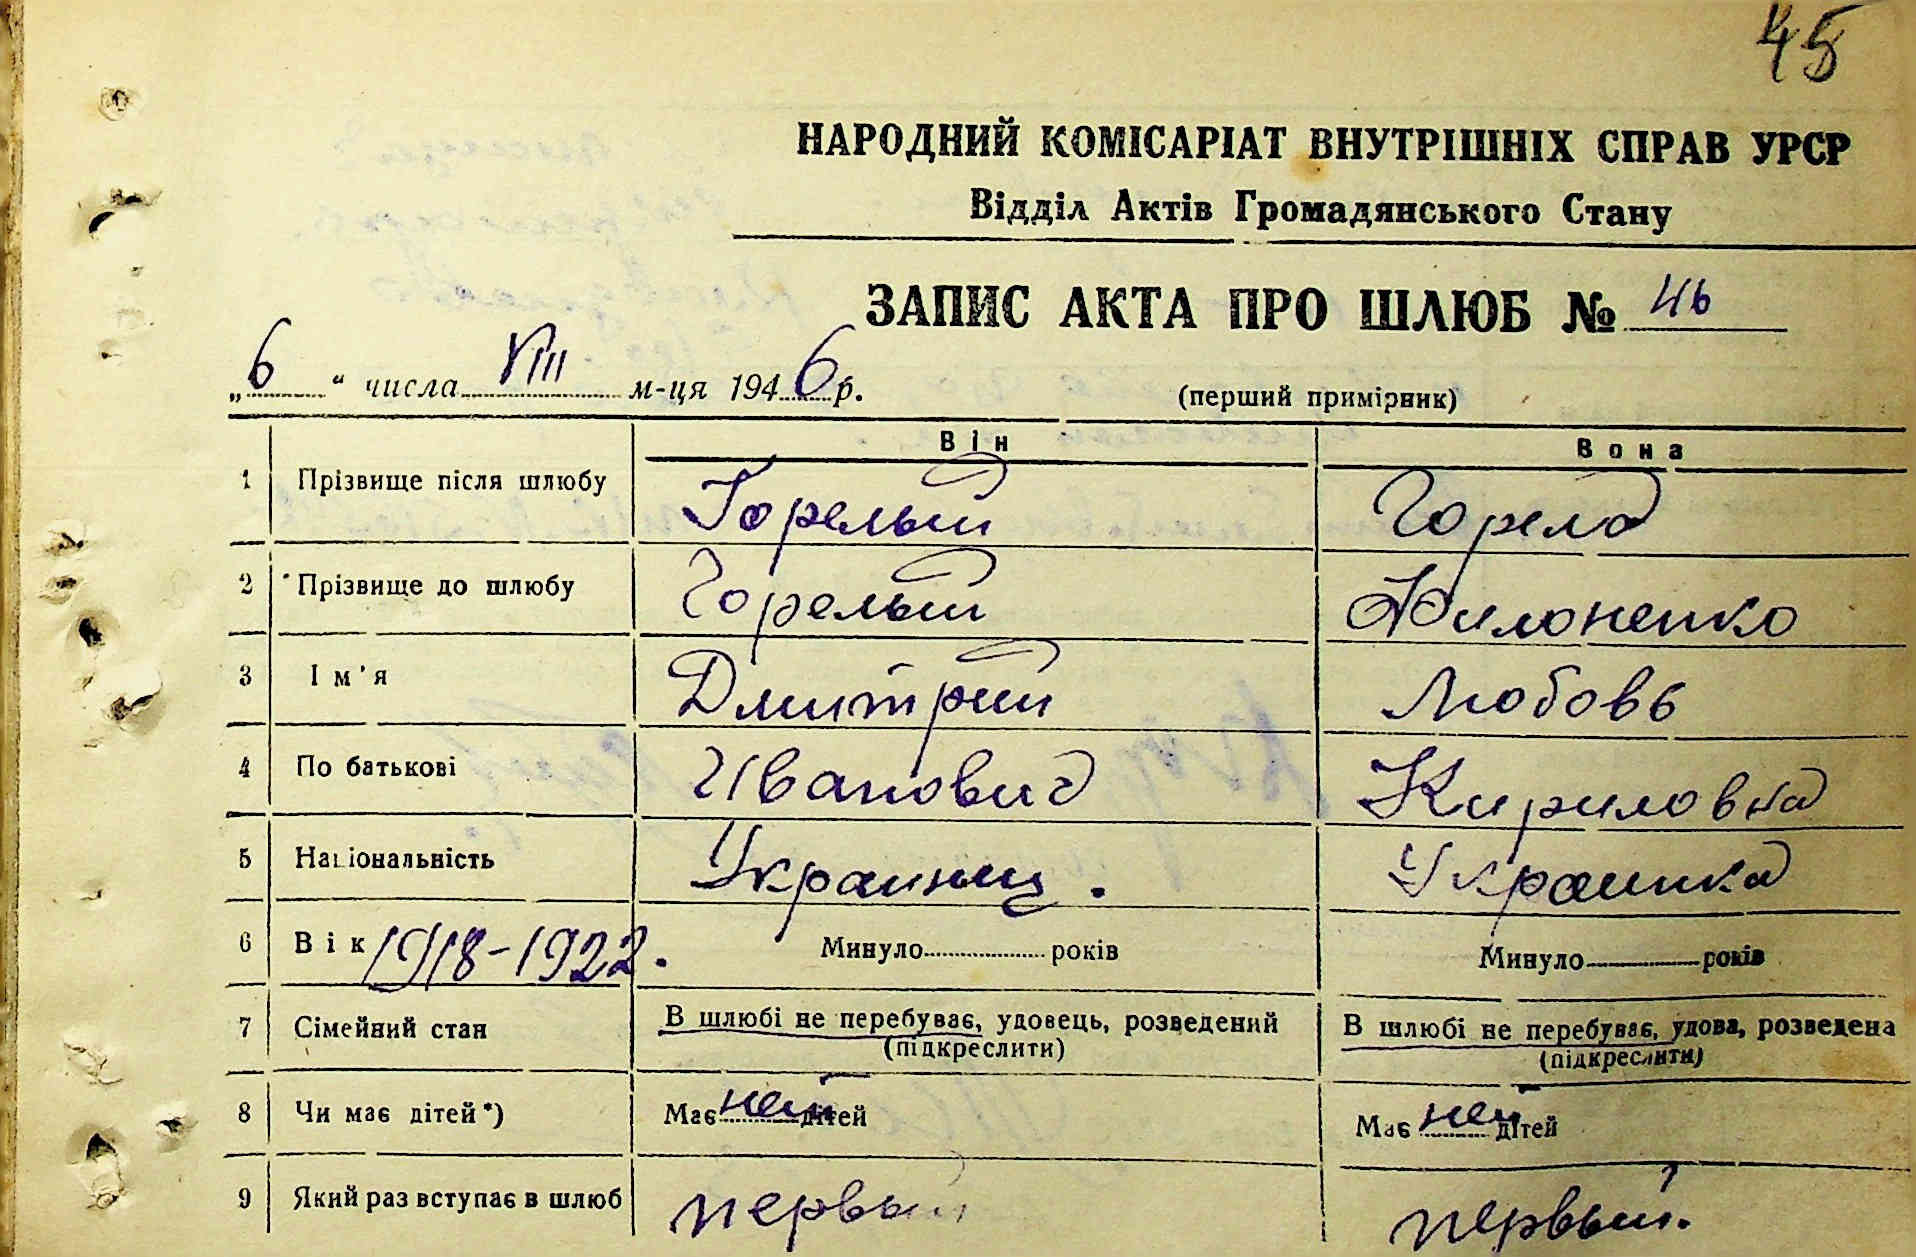 45
НАРОДНИЙ КОМІСАРІАТ ВНУТРІШНІХ СПРАВ УРСР
Відділ Актів Громадянського Стану
ЗАПИС АКТА ПРО ШЛЮБ № 46
„6“ числа VIII м-ця 1946 р. (перший примірник)
Він Вона
1 Прізвище після шлюбу Горелый Горела
2 Прізвище до шлюбу Горелый Филоненко
3 Ім'я Дмитрий Любовь
4 По батькові Иванович Кириловна
5 Національність Украинец. Украинка
6 Вік 1918-1922. Минуло років Минуло років
7 Сімейний стан В шлюбі не перебуває, удовець, розведений В шлюбі не перебуває, удова, розведена
(підкреслити) (підкреслити)
8 Чи має дітей*) Має нет дітей Має нет дітей
9 Який раз вступає в шлюб первый первый.